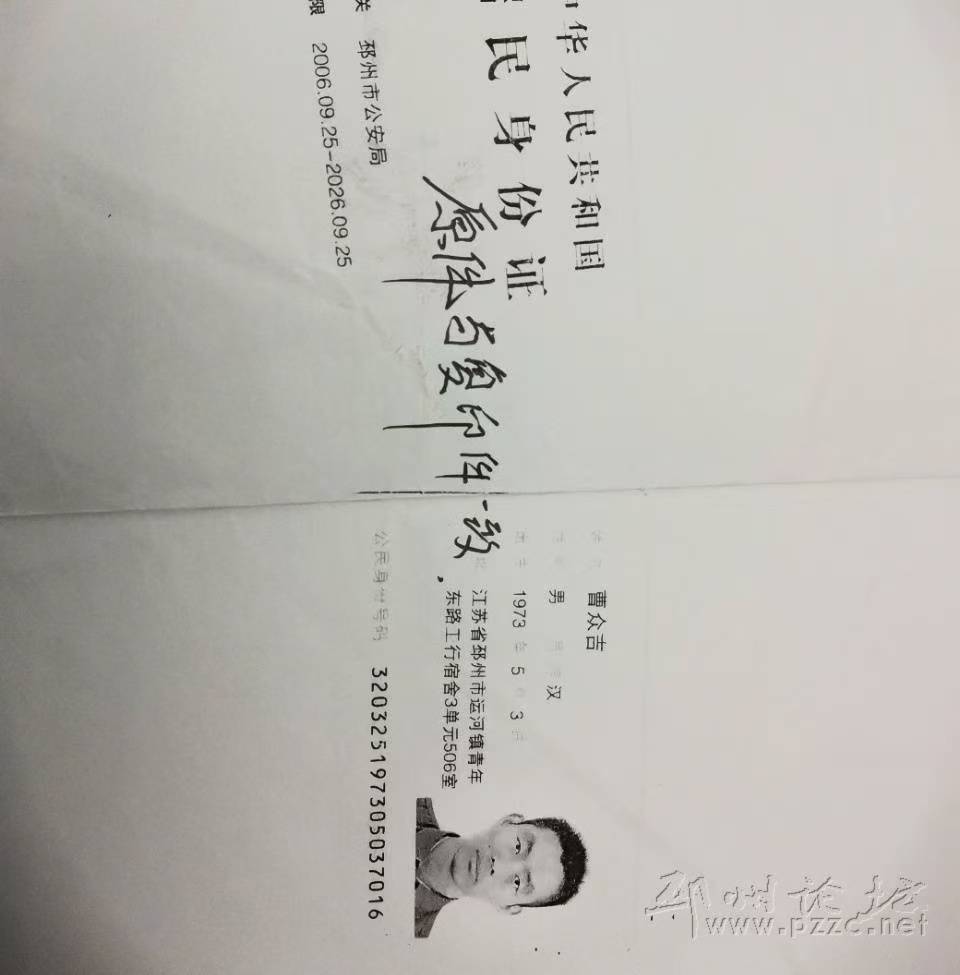 华人民共和国
民身份证
原件与复印件一致.
邳州市公安局
限 2006.09.25-2026.09.25
曹众吉
男 汉
1973 年 5 3
江苏省邳州市运河镇青年
东路工行宿舍3单元506室
公民身份号码 320325197305037016
邳州论坛
www.pzzc.net